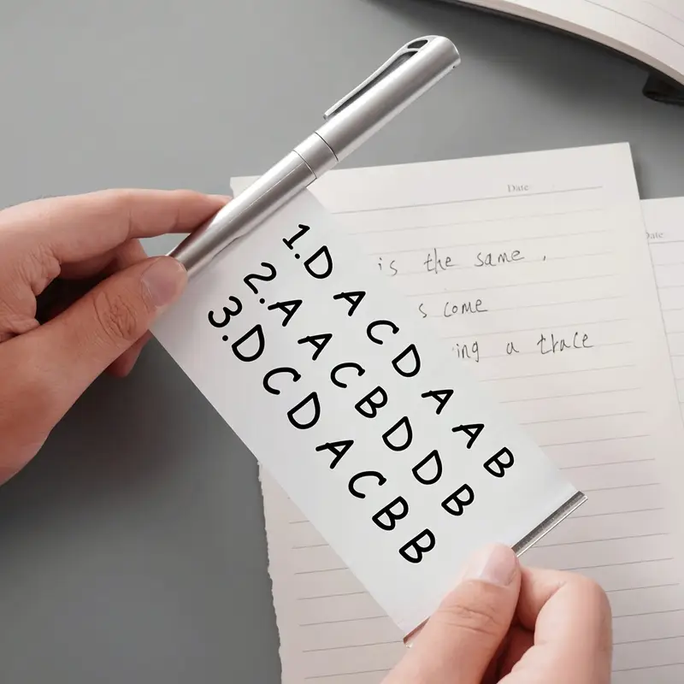 1.D A C D A A B
2.A A C B D D B
3.D C D A C B B
Date
is the same ,
s come
ing a trace
Date